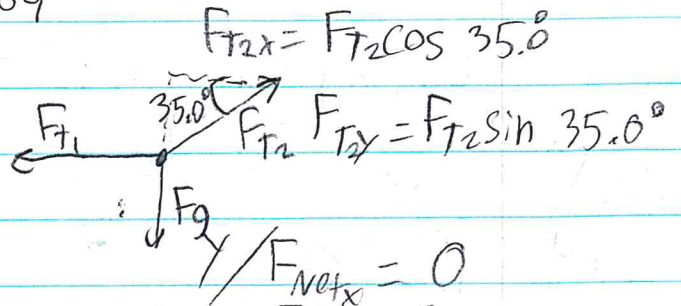 F_T2x = F_T2 cos 35.0°
35.0°
F_T1
F_T2 F_T2y = F_T2 sin 35.0°
Fg
y/F_Netx = 0